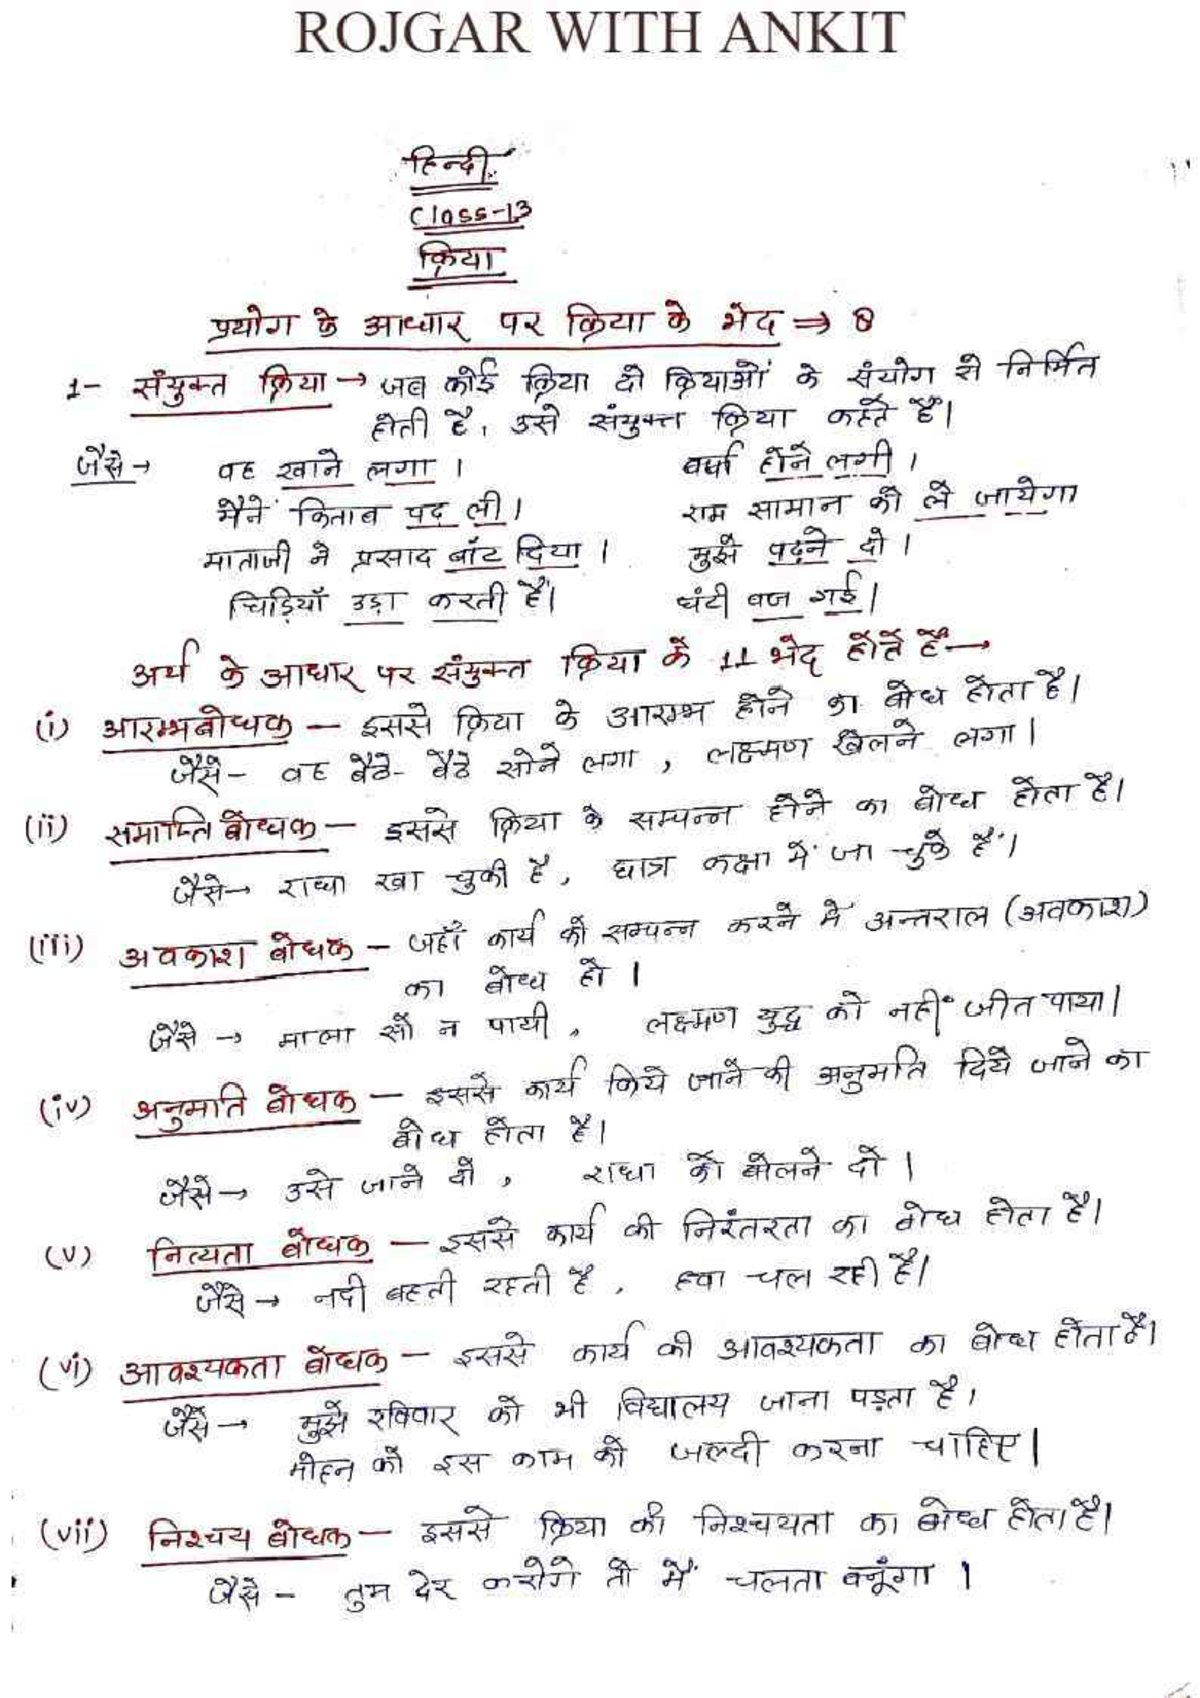 ROJGAR WITH ANKIT
हिन्दी
Class-13
क्रिया
प्रयोग के आधार पर क्रिया के भेद ⇒ 8
1- संयुक्त क्रिया → जब कोई क्रिया दो क्रियाओं के संयोग से निर्मित
होती है, उसे संयुक्त क्रिया कहते हैं।
जैसे → वह खाने लगा । वर्षा होने लगी ।
मैंने किताब पढ़ ली। राम सामान को ले जायेगा
माताजी ने प्रसाद बाँट दिया । मुझे पढ़ने दो ।
चिड़ियाँ उड़ा करती हैं। घंटी बज गई।
अर्थ के आधार पर संयुक्त क्रिया के 11 भेद होते हैं →
(i) आरम्भबोधक – इससे क्रिया के आरम्भ होने का बोध होता है।
जैसे - वह बैठे- बैठे सोने लगा , लक्ष्मण खेलने लगा।
(ii) समाप्ति बोधक – इससे क्रिया के सम्पन्न होने का बोध होता है।
जैसे → राधा खा चुकी है , छात्र कक्षा में जा चुके हैं।
(iii) अवकाश बोधक – जहाँ कार्य को सम्पन्न करने में अन्तराल (अवकाश)
का बोध हो ।
जैसे → माला सो न पायी , लक्ष्मण युद्ध को नहीं जीत पाया।
(iv) अनुमति बोधक – इससे कार्य किये जाने की अनुमति दिये जाने का
बोध होता है।
जैसे → उसे जाने दो , राधा को बोलने दो ।
(v) नित्यता बोधक – इससे कार्य की निरंतरता का बोध होता है।
जैसे → नदी बहती रहती है , हवा चल रही है।
(vi) आवश्यकता बोधक – इससे कार्य की आवश्यकता का बोध होता है।
जैसे → मुझे रविवार को भी विद्यालय जाना पड़ता है,
मोहन को इस काम को जल्दी करना चाहिए।
(vii) निश्चय बोधक – इससे क्रिया की निश्चयता का बोध होता है।
जैसे - तुम देर करोगे तो मैं चलता बनूंगा ।